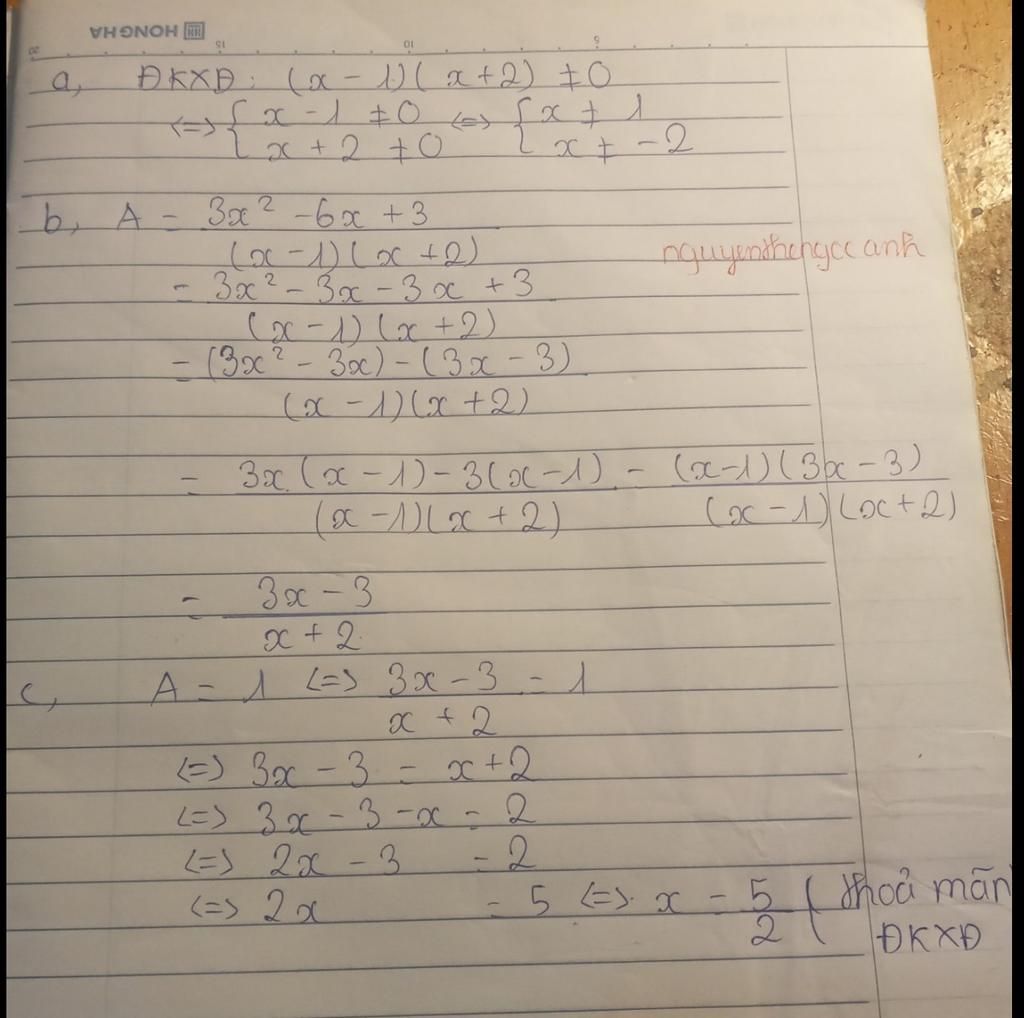 HONG HA
20 15 10 5
a, ĐKXĐ: (x - 1)(x + 2) ≠ 0
<=> { x - 1 ≠ 0 <=> { x ≠ 1
x + 2 ≠ 0 x ≠ -2
b, A = 3x² - 6x + 3
(x - 1)(x + 2)
nguyenthengcc anh
= 3x² - 3x - 3x + 3
(x - 1)(x + 2)
= (3x² - 3x) - (3x - 3)
(x - 1)(x + 2)
= 3x(x - 1) - 3(x - 1) = (x - 1)(3x - 3)
(x - 1)(x + 2) (x - 1)(x + 2)
= 3x - 3
x + 2
c, A = 1 <=> 3x - 3 = 1
x + 2
<=> 3x - 3 = x + 2
<=> 3x - 3 - x = 2
<=> 2x - 3 = 2
<=> 2x = 5 <=> x = 5 ( thoả mãn
2 ĐKXĐ